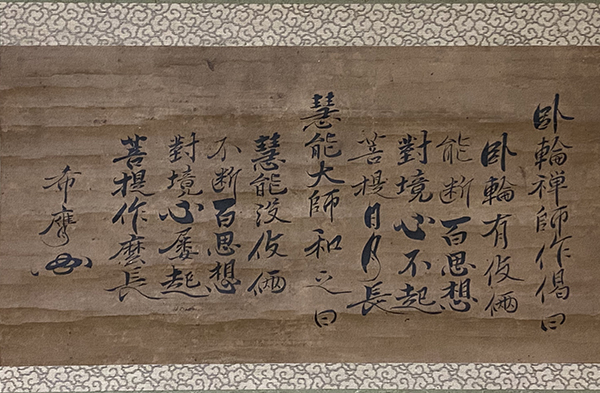 卧輪禅師作偈曰
卧輪有伎倆
能断百思想
對境心不起
菩提日月長
慧能大師和之曰
慧能没伎倆
不断百思想
對境心屡起
菩提作麼長
希膺